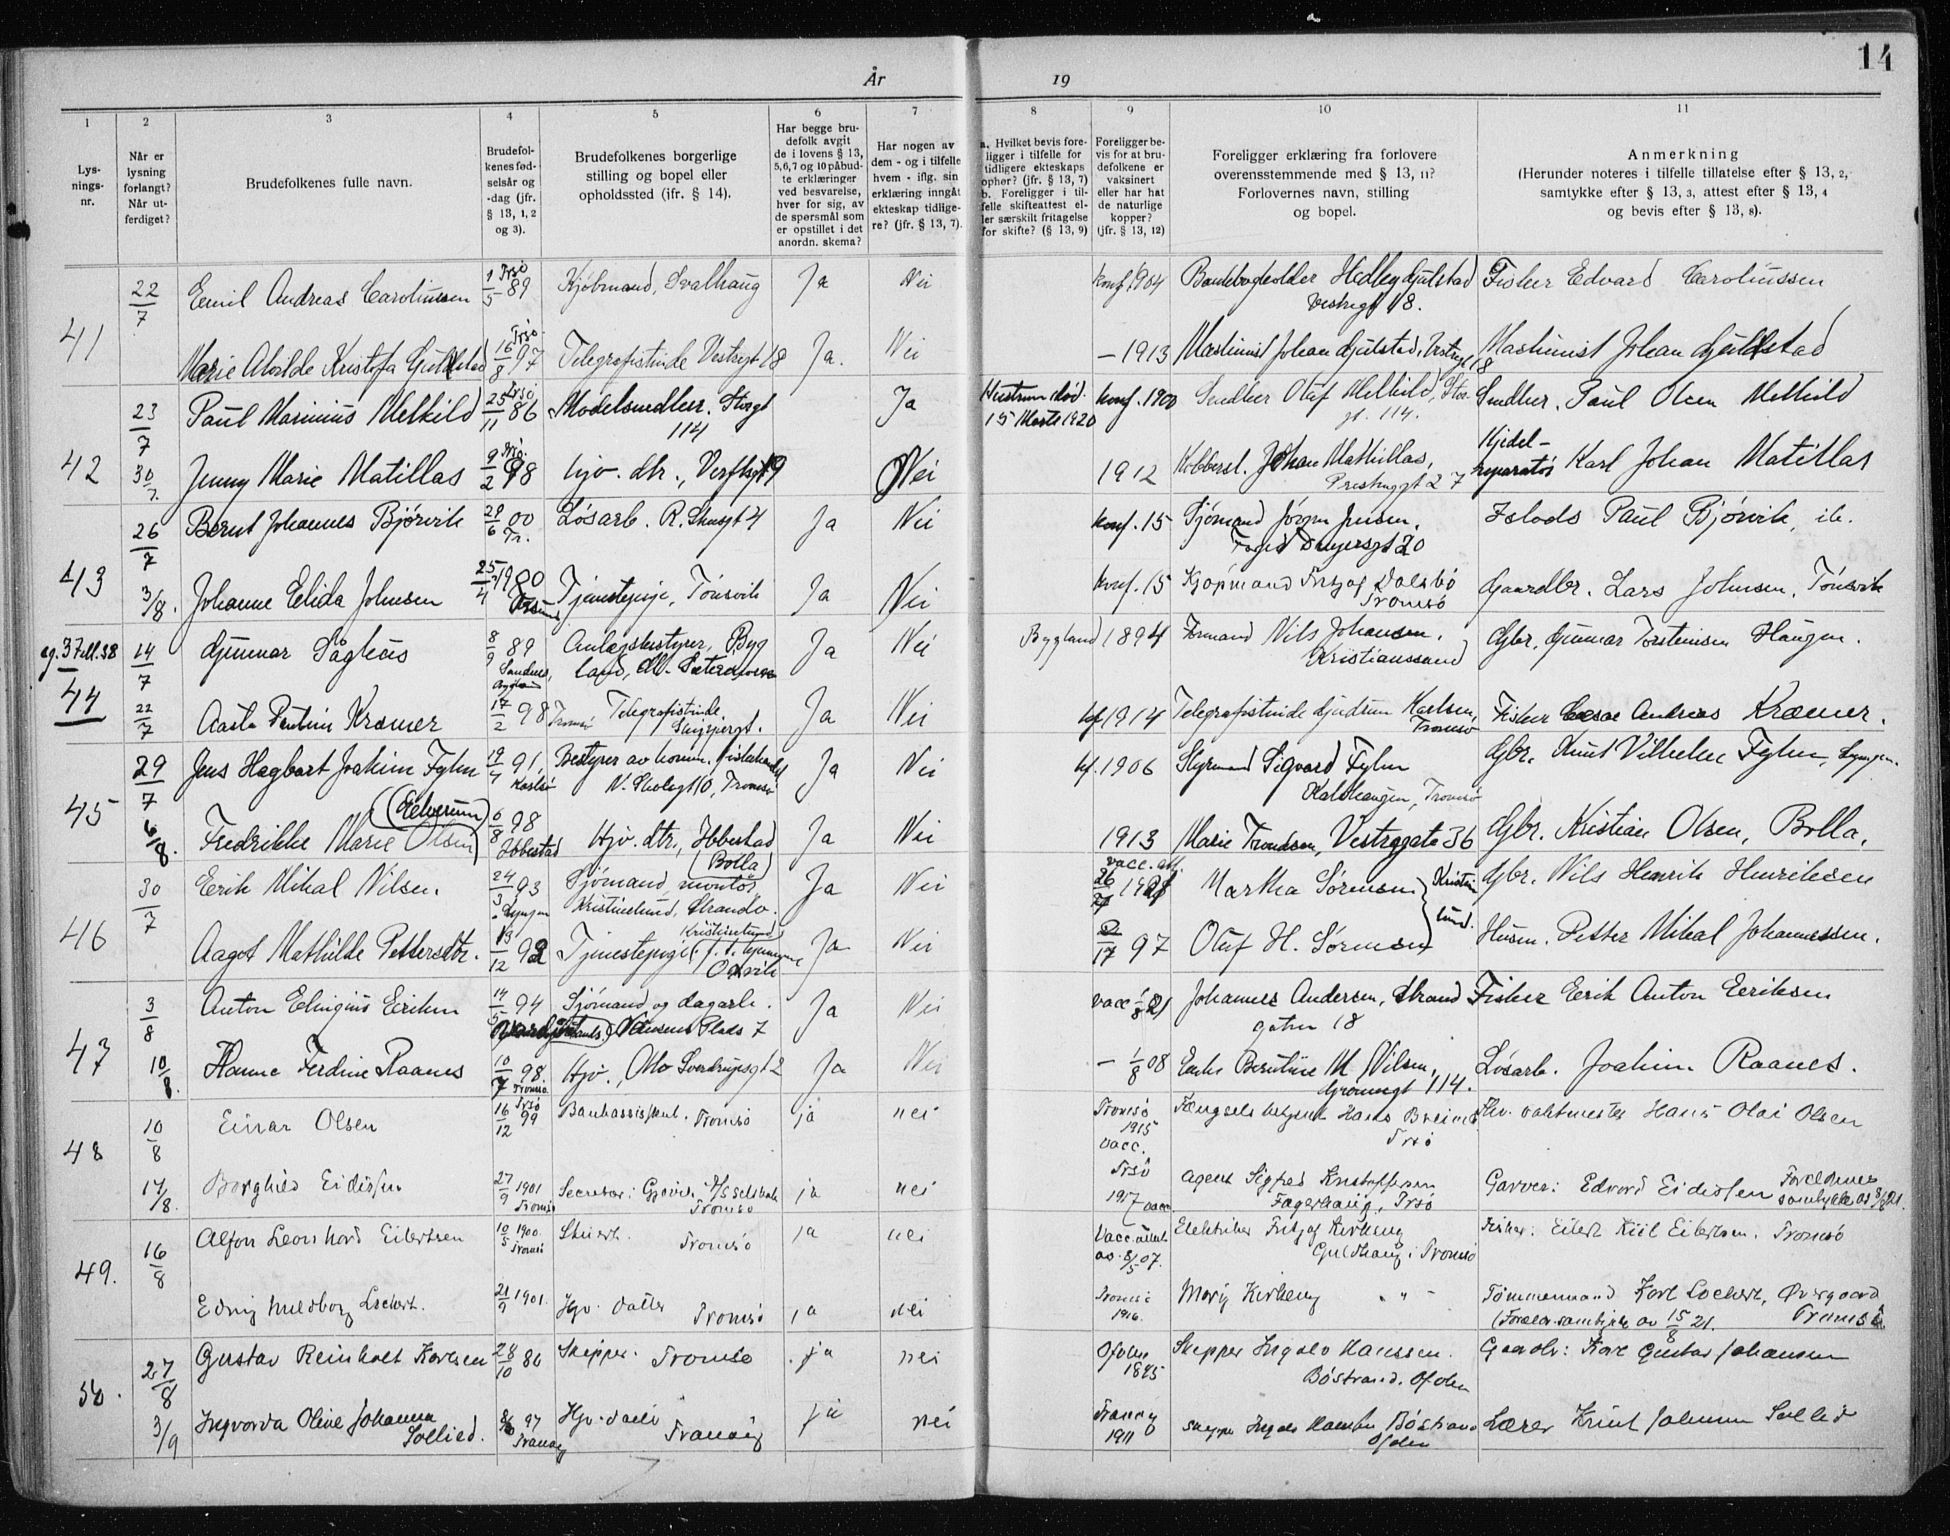 14
År 19
1 2 3 4 5 6 7 8 9 10 11
Lysningsnr.
Når er lysning forlangt? Når utferdiget?
Brudefolkenes fulle navn.
Brudefolkenes fødselsår og -dag (jfr. § 13, 1, 2 og 3).
Brudefolkenes borgerlige stilling og bopel eller opholdssted (jfr. § 14).
Har begge brudefolk avgit de i lovens § 13, 5,6,7 og 10 påbudte erklæringer ved besvarelse, hver for sig, av de spørsmål som er opstillet i det anordn. skema?
Har nogen av dem - og i tilfelle hvem - iflg. sin erklæring inngåt ekteskap tidligere? (jfr. § 13, 7).
a. Hvilket bevis foreligger i tilfelle for tidligere ekteskaps ophør? (jfr. § 13, 7) b. Foreligger i tilfelle skifteattest eller særskilt fritagelse for skifte? (§ 13, 9)
Foreligger bevis for at brudefolkene er vaksinert eller har hat de naturlige kopper? (jfr. § 13, 12)
Foreligger erklæring fra forlovere overensstemmende med § 13, 11? Forlovernes navn, stilling og bopel.
Anmerkning (Herunder noteres i tilfelle tillatelse efter § 13, 2, samtykke efter § 13, 3, attest efter § 13, 4 og bevis efter § 13, 8).
41 22/7 Emil Andreas Caroliussen 1/5 89 Trsø Kjøbmand, Svalhaug Ja Nei konf. 1904 Bankbogholder Hedley Gjulstad Vestregt 18. Fisker Edvard Caroliussen
Marie Alvilde Kristofa 16/8 97 Trsø Telegrafistinde Vestregt 18 Ja. Nei - 1913 Maskinist Johan Gjulstad, Vestregt 18 Maskinist Johan
42 23/7 Paul Marinius Melkild 25/11 86 Trsø Modelsnedker. Storgt 114 Ja Hustrun død 15 Marts 1920 konf. 1900 Snedker Oluf Melkild, Storgt. 114. Snedker. Paul Olsen Melkild
30/7. Jenny Marie Matillas 9/2 98 Trsø. hjv. dtr., Verftsgt 9 Nei 1912 Johan Mathillas, 27 Kjedelreparatør Karl Johan Matillas
43 26/7 Bernt Johannes Bjørvik 29/6 00 Tr. Løsarb. R. 4 Ja Nei konf. 15 Sjømand Jørgen Jensen, Foged Dreyersgt 20 Paul Bjørvik,
3/8. Johanne Elida Johnsen 25/4 Tjenestepige, Tønsvik Ja Nei konf. 15 Kjøpmand Fritjof Dalsbø Tromsø Gaardbr. Lars Johnsen, Tønsvik
44 14/7 Gunnar Saghus 8/9 89 Sandnes, Anlægsbestyrer, Bygland, Ja Nei Bygland 1894 Formand Nils Johansen, Kristianssand Gbr. Gunnar Torsteinsen Haugen.
22/7 Aasta Kræmer 17/2 98 Tromsø Telegrafistinde. Ja Nei kf 1914 Telegrafistinde Gudrun Karlsen, Tromsø Fisker Andreas Kræmer.
45 29/7 Jens Hagbart Joakim Fyhn 19/4 91 Karlsø Bestyrer av komm. N. Skolegt 10, Tromsø Ja Nei kf. 1906 Styrmand Sigvard Fyhn Tromsø Gbr. Knut Vilhelm Fyhn, Lyngen.
6/8. Fredrikke Marie Olsen (Elverum) 6/8 98 Ibbestad Hjv. dtr., Ibbestad (Bolla) Ja Nei 1913 Marie Trondsen, Vestregate 36 Gbr. Kristian Olsen, Bolla,
46 30/7 Erik Mikal Nilsen. 24/3 93 Lyngen Sjømand, montør, Kristinelund, Strandv. Ja Nei vacc. att. Martha Sørensen Kristinelund. Gbr. Nils Henrik Henriksen
Aagot Mathilde Pettersdtr. 13/12 92 Tjenestepige Kristinelund Ja Nei 97 Oluf H. Sørensen Husm. Petter Mikal Johannessen.
47 3/8 Anton Elingius Eriksen 14/5 94 Sjømand og dagarb. Plads 7 Ja Nei vacc 1/8 21 Johannes Andersen, Strandgaten 18 Fisker Erik Anton Eriksen
10/8. Hanne Ferdine Raanes 10/7 98. Tromsø Hjv., Otto Sverdrupsgt 2 Ja Nei - 1/8 08 Enke Berntine M. Nilsen, Grønnegt 114. Løsarb. Joakim Raanes.
48 10/8 Einar Olsen 16/12 99 Trsø Bankassistent. Tromsø ja nei Tromsø 1915 vacc. Fængselsbetjent Hans Trsø vaktmester Hans Olai Olsen
17/8. Borghild Eidissen 27/9 1901 Tromsø Tromsø ja nei Trsø 1917 vacc agent Sigfred Kristoffersen Fagerhaug, Trsø Garver: Edvard Eidissen Forældrenes samtykke
49. 16/8 Alfon Leonhard Eilertsen 10/5 1900 Tromsø Tromsø ja nei Vacc. 8/5 07. Elektriker Fritjof Kirkeng Tromsø Fisker: Eilert Kiil Eilertsen. Tromsø
Lockert. 21/9 1901. Hjv. datter Tromsø ja nei Tromsø 1916. Kirkeng " Tømmermand Karl Lockert, Øvergaard Tromsø (Foreldr. samtykke av 15/8 21.
50. 27/8 Gustav Reinholt Karlsen 28/10 86 Skipper. Tromsø ja nei Ofoten Skipper Ingolv Hanssen. Bøstrand, Ofoten Gaardbr: Karl Gustav Johansen
3/9 Ingvarda Olive Johanna Sollied. 97 Tranøy Hjv. datter Tranøy ja nei Tranøy 1911 Bøstrand Ofoten Lærer Knut Johnsen Sollied